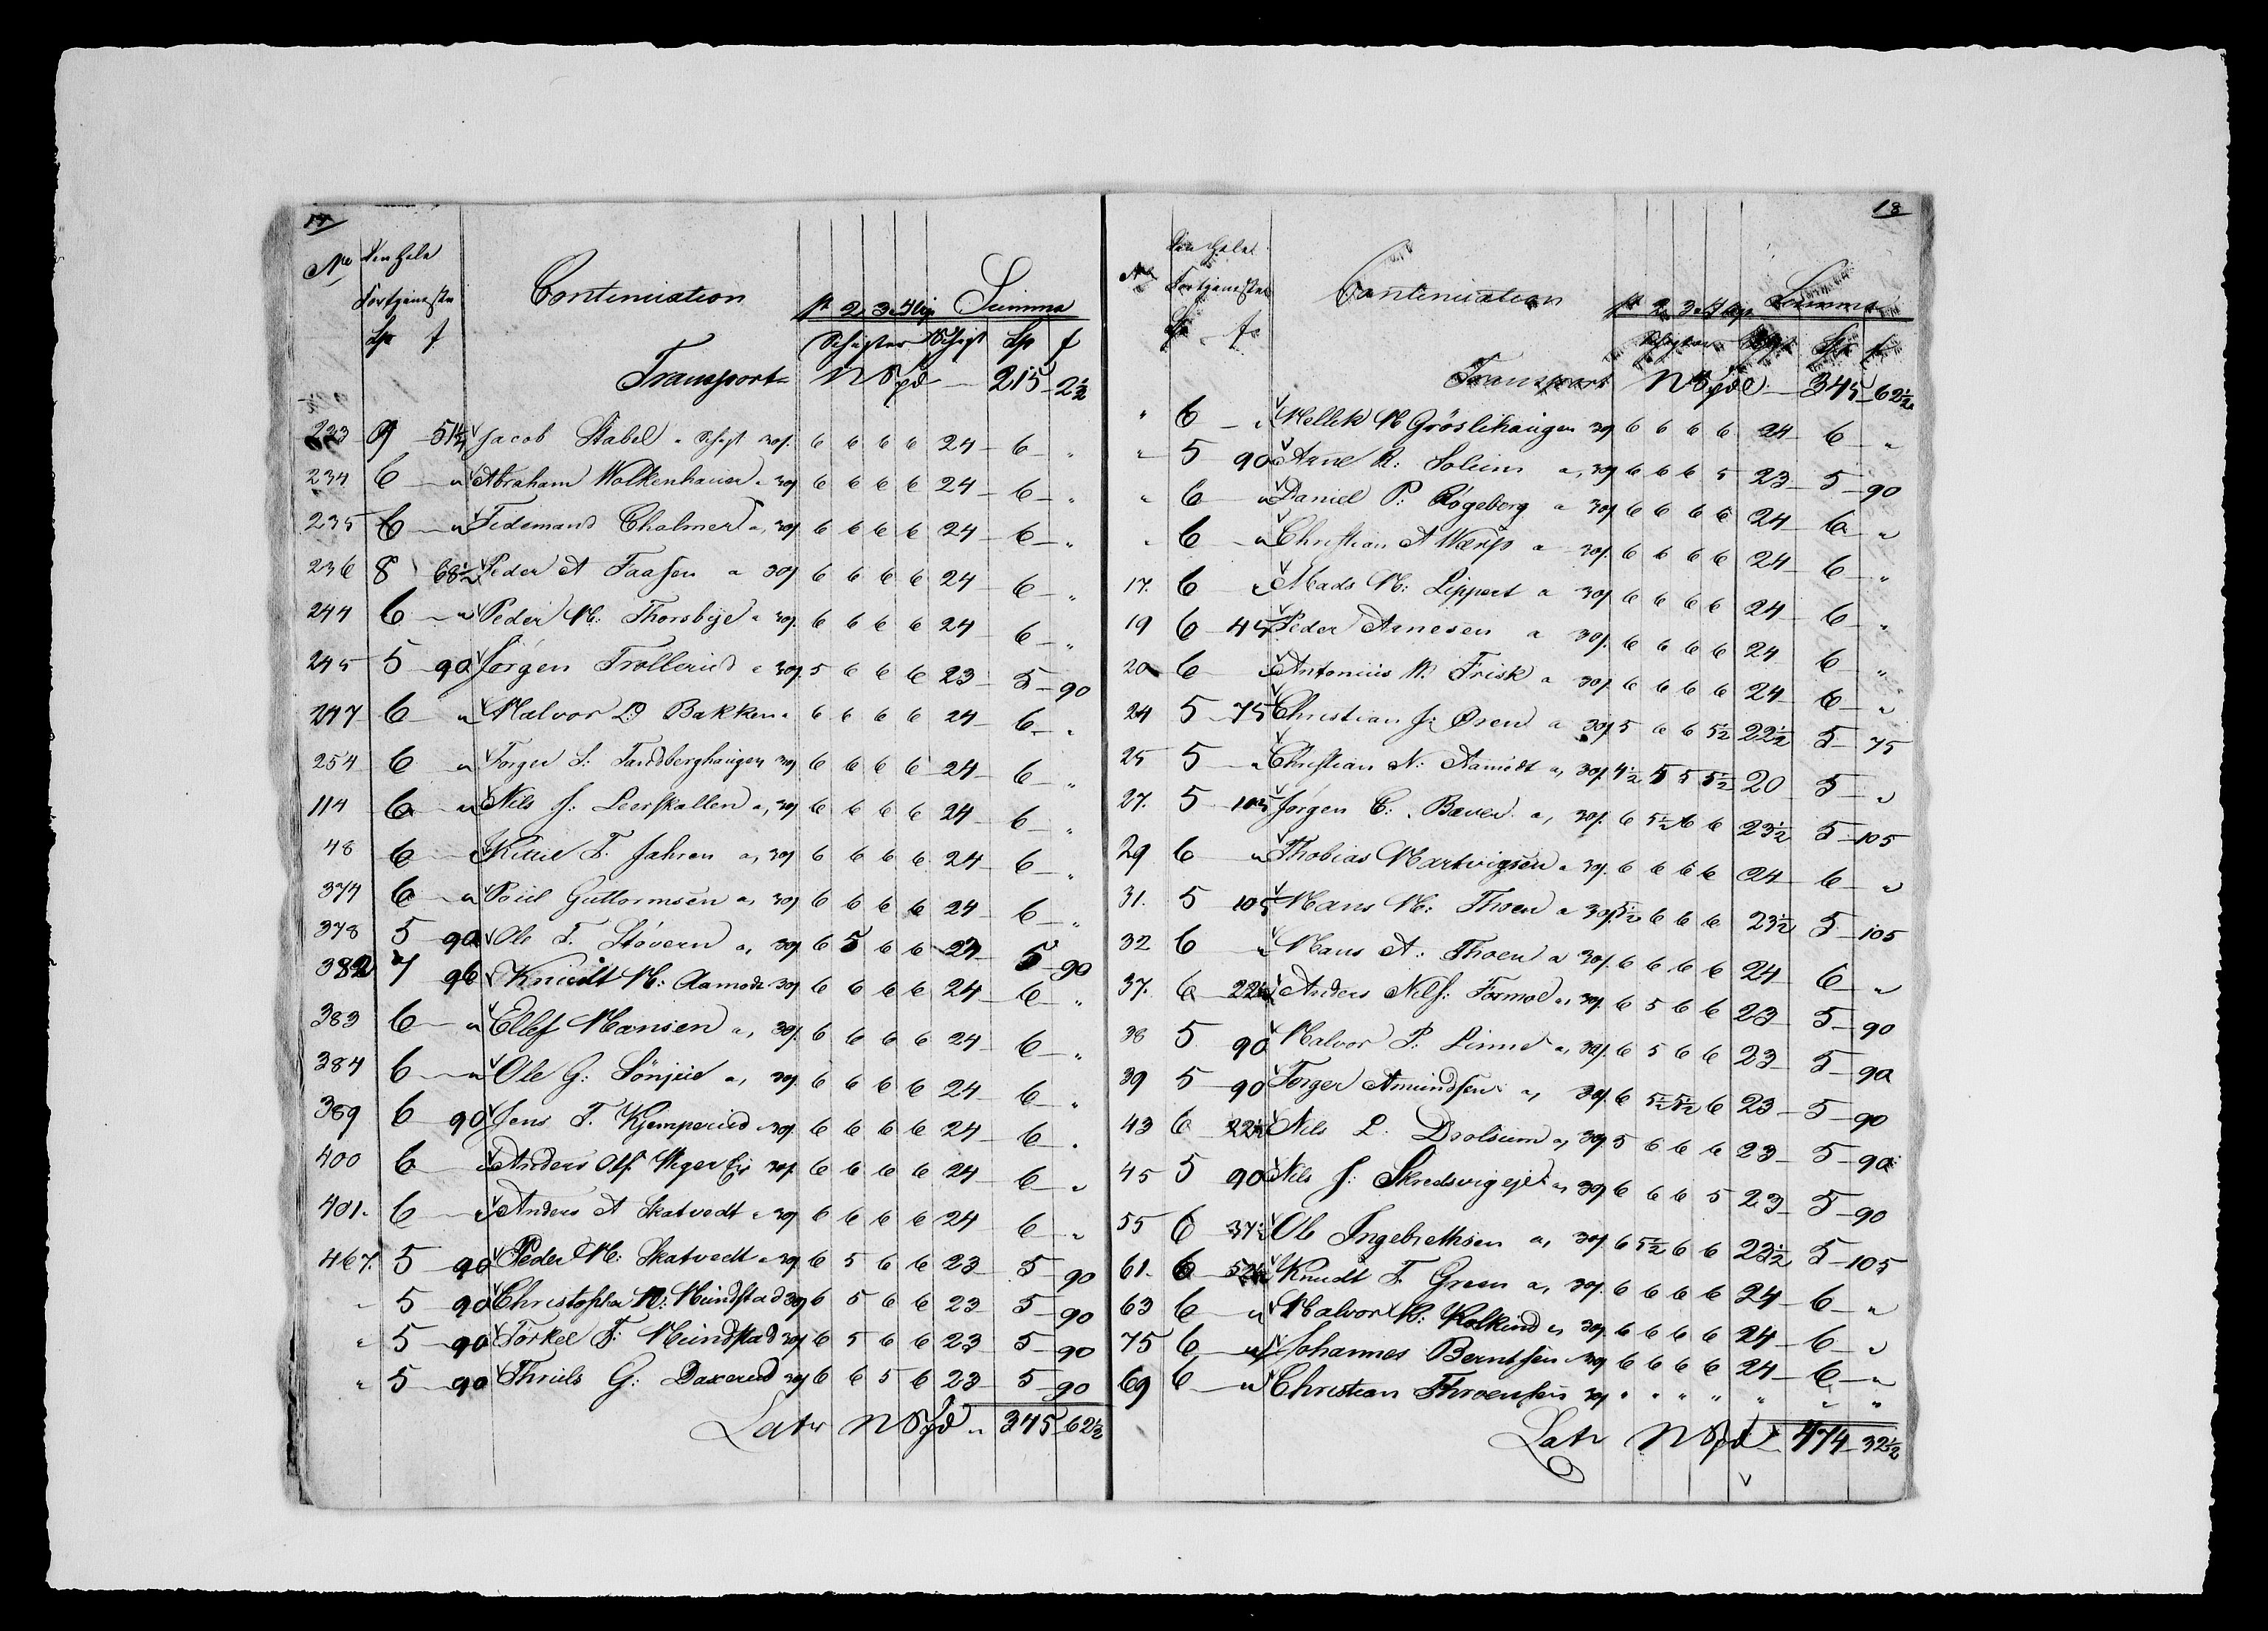 17
No den hele Continuation 1ste 2 3 4 Ugr Summa
Fortjeneste
Sp f Schigter Schigt Sp f
Transport N Spd — 215 - 2½
233 9 - 51½ Jacob Stabel a Schigt 30f. 6 6 6 6 24 - 6 - "
234 6 — " Abraham Wolkenhauer a 30f 6 6 6 6 24 - 6 - "
235 6 — " Fedemand Chalmer a, 30f 6 6 6 6 24 - 6 - "
236 8 68½ Peder A Faasen a 30f 6 6 6 6 24 - 6 - "
244 6 — " Peder H: Thorsbye a 30f. 6 6 6 6 24 6 - "
245 5 - 90 Jørgen Trollerud a 30f. 5 6 6 6 23 - 5 - 90
247 6 — " Halvor D Bakken a 6 6 6 6 24 - 6 - "
254 6 — " Torger S: Tandberghaugen 30f 6 6 6 6 24 - 6 - "
114 6 — " Nils J: Leerskallen a, 30f 6 6 6 6 24 - 6 - "
48 6 — " Kittil T. Jahren a, 30f 6 6 6 6 24 - 6 - "
374 6 — " Poul Guttormsen a, 30f 6 6 6 6 24 - 6 - "
378 5 - 90 Ole T. Støvern a, 30f 6 5 6 6 23 - 5 - 90
382 7 96 Knudt H: Aamodt 30f 6 6 6 6 24 - 6 - "
383 6 — " Ellef Hansen a, 30f. 6 6 6 6 24 - 6 - "
384 6 — " Ole G: Sönjue a, 30f. 6 6 6 6 24 - 6 - "
389 6 90 Jens T. Kjemperud a 30f. 6 6 6 6 24 - 6 - "
400 6 — " Anders Ols. Ager Ejr 30f. 6 6 6 6 24 - 6 - "
401. 6 — " Anders A Skatvedt a 30f 6 6 6 6 24 6 - "
467. 5 - 90 Peder H: Skatvedt a 30f 6 5 6 6 23 - 5 - 90
" 5 - 90 Christopher N: Mundstad 30f 6 5 6 6 23 - 5 - 90
" 5 - 90 Torkel T: Mundstad 30f 6 5 6 6 23 5 - 90
" 5 - 90 Thruls G: Daxerud 30f 6 6 5 6 23 - 5 - 90
Latr N Spd " 345 - 62½
18
No den hele Continuation 1ste 2 3 4 Ugr. Summa
Fortjeneste
Sp f Schigter Schigt Sp f
Transport N Spd — 345 - 62½
" 6 — " Hellik H Gröslihaugen 30f 6 6 6 6 24 - 6 - "
" 5 90 Arne R: Solum a, 30f 6 6 6 5 23 - 5 - 90
" 6 — " Daniel P: Rögeberg a 30f 6 6 6 6 24 - 6 - "
" 6 — " Christian A Wærp a 30f. 6 6 6 6 24 - 6 - "
17. 6 " Mads H: Lippert a 30f 6 6 6 6 24 - 6 - "
19 6 - 45 Peder Arnesen a 30f. 6 6 6 6 24 6 - "
20 6 — " Antonius N. Frisk a 30f. 6 6 6 6 24 - 6 - "
24 5 - 75 Christian J: Øren a 30f. 5 6 6 5½ 22½ 5 - 75
25 5 — " Christian N: Aamodt a, 30f. 4½ 5 5 5½ 20 5 - "
27. 5 105 Jörgen C: Bauer a, 30f. 6 5½ 6 6 23½ 5 - 105
29 6 — " Thobias Hartvigsen a 30f. 6 6 6 6 24 - 6 - "
31. 5 105 Hans H: Thoen a 30f. 5½ 6 6 6 23½ 5 - 105
32 6 — " Hans A: Thoen a 30f. 6 6 6 6 24 - 6 - "
37. 6 22½ Anders Nils: Formoe a, 30f. 6 5 6 6 23 5 - 90
38 5 90 Halvor P: Linne a, 30f. 6 5 6 6 23 5 - 90
39 5 90 Torger Amundsen a, 30f. 6 5½ 5½ 6 23 - 5 - 90
43 6 22½ Nils L: Drolsum a, 30f 5 6 6 6 23 - 5 - 90
45 5 90 Nils J: Skredsvigejet a, 30f. 6 6 6 5 23 - 5 - 90
55 6 37½ Ole Ingebrethsen a, 30f 6 5½ 6 6 23½ 5 - 105
61. 6 52½ Knudt T. Green a, 30f. 6 6 6 6 24 - 6 - "
63 6 — " Halvor H: Kolkind a, 30f. 6 6 6 6 24 - 6 - "
75 6 — " Johannes Berntsen a 30f 6 6 6 6 24 - 6 - "
69 6 — " Christian Throensen 30f " " " " " " "
Latr N Spd " 474 - 32½